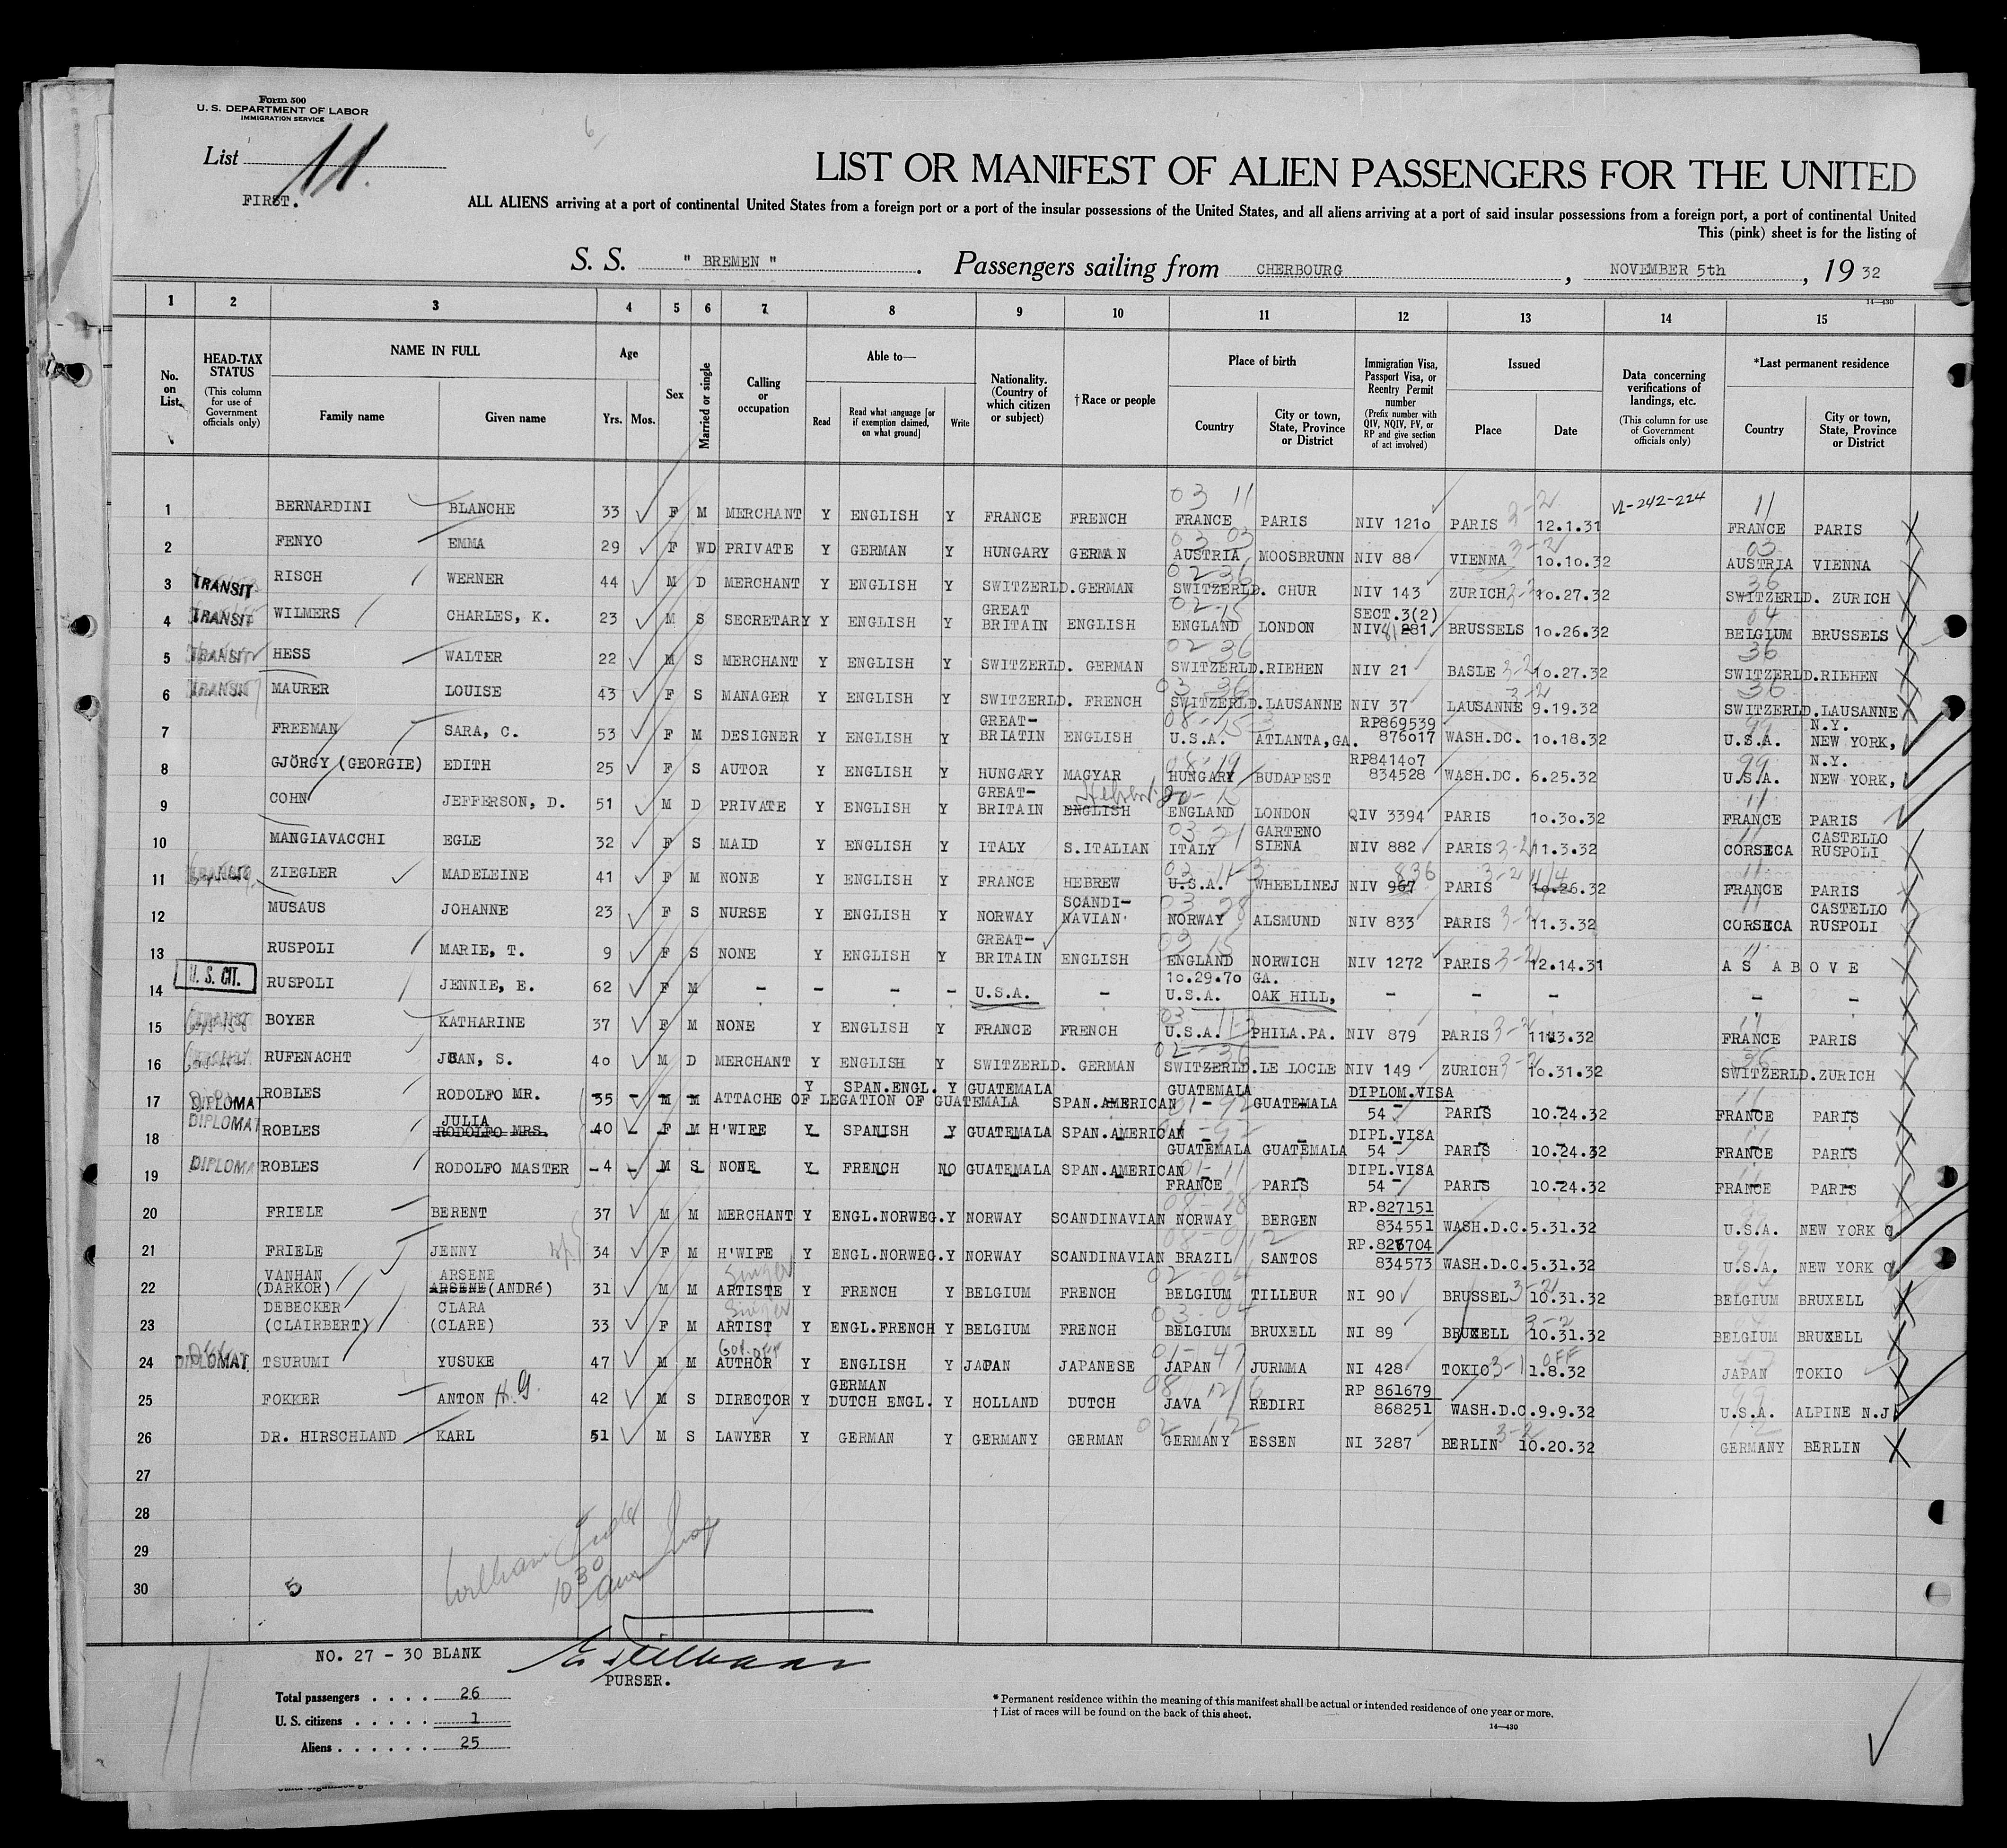 Form 500
U. S. DEPARTMENT OF LABOR
IMMIGRATION SERVICE
6
List 11.
FIRST.
LIST OR MANIFEST OF ALIEN PASSENGERS FOR THE UNITED
ALL ALIENS arriving at a port of continental United States from a foreign port or a port of the insular possessions of the United States, and all aliens arriving at a port of said insular possessions from a foreign port, a port of continental United
This (pink) sheet is for the listing of
S. S. " BREMEN " . Passengers sailing from CHERBOURG , NOVEMBER 5th , 19 32
14—430
1 2 3 4 5 6 7 8 9 10 11 12 13 14 15
No. on List HEAD-TAX STATUS (This column for use of Government officials only) NAME IN FULL Family name Given name Age Yrs. Mos. Sex Married or single Calling or occupation Able to— Read Read what language [or if exemption claimed, on what ground] Write Nationality. (Country of which citizen or subject) †Race or people Place of birth Country City or town, State, Province or District Immigration Visa, Passport Visa, or Reentry Permit number (Prefix number with QIV, NQIV, PV, or RP and give section of act involved) Issued Place Date Data concerning verifications of landings, etc. (This column for use of Government officials only) *Last permanent residence Country City or town, State, Province or District
1 BERNARDINI BLANCHE 33 F M MERCHANT Y ENGLISH Y FRANCE FRENCH 03 11 FRANCE PARIS NIV 1210 PARIS 3-2 12.1.31 VL-242-224 11 FRANCE PARIS
2 FENYO EMMA 29 F WD PRIVATE Y GERMAN Y HUNGARY GERMAN 03 03 AUSTRIA MOOSBRUNN NIV 88 VIENNA 3-2 10.10.32 03 AUSTRIA VIENNA
3 TRANSIT RISCH WERNER 44 M D MERCHANT Y ENGLISH Y SWITZERLD. GERMAN 02-36 SWITZERLD. CHUR NIV 143 ZURICH 3-2 10.27.32 36 SWITZERLD. ZURICH
4 TRANSIT WILMERS CHARLES, K. 23 M S SECRETARY Y ENGLISH Y GREAT BRITAIN ENGLISH 02-15 ENGLAND LONDON SECT.3(2) NIV 81 281 BRUSSELS 10.26.32 04 BELGIUM BRUSSELS
5 TRANSIT HESS WALTER 22 M S MERCHANT Y ENGLISH Y SWITZERLD. GERMAN 02-36 SWITZERLD. RIEHEN NIV 21 BASLE 3-2 10.27.32 36 SWITZERLD. RIEHEN
6 TRANSIT MAURER LOUISE 43 F S MANAGER Y ENGLISH Y SWITZERLD. FRENCH 03 36 SWITZERLD. LAUSANNE NIV 37 LAUSANNE 3-2 9.19.32 36 SWITZERLD. LAUSANNE
7 FREEMAN SARA, C. 53 F M DESIGNER Y ENGLISH Y GREAT- BRIATIN ENGLISH 08-15-3 U.S.A. ATLANTA,GA. RP869539 876017 WASH.DC. 10.18.32 99 U.S.A. N.Y. NEW YORK,
8 GJÖRGY (GEORGIE) EDITH 25 F S AUTOR Y ENGLISH Y HUNGARY MAGYAR 08-19 HUNGARY BUDAPEST RP841407 834528 WASH.DC. 6.25.32 99 U.S.A. N.Y. NEW YORK,
9 COHN JEFFERSON, D. 51 M D PRIVATE Y ENGLISH Y GREAT- BRITAIN Hebrew ENGLISH 20-15 ENGLAND LONDON QIV 3394 PARIS 10.30.32 11 FRANCE PARIS
10 MANGIAVACCHI EGLE 32 F S MAID Y ENGLISH Y ITALY S.ITALIAN 03 21 ITALY GARTENO SIENA NIV 882 PARIS 3-2 11.3.32 11 CORSECA CASTELLO RUSPOLI
11 TRANSIT ZIEGLER MADELEINE 41 F M NONE Y ENGLISH Y FRANCE HEBREW 03 11-3 U.S.A. WHEELINEJ NIV 967 836 PARIS 3-2 11/4 10.26.32 11 FRANCE PARIS
12 MUSAUS JOHANNE 23 F S NURSE Y ENGLISH Y NORWAY SCANDI- NAVIAN 03 28 NORWAY ALSMUND NIV 833 PARIS 3-2 11.3.32 11 CORSECA CASTELLO RUSPOLI
13 RUSPOLI MARIE, T. 9 F S NONE Y ENGLISH Y GREAT- BRITAIN ENGLISH 03 15 ENGLAND NORWICH NIV 1272 PARIS 3-2 12.14.31 11 AS ABOVE
14 U. S. CIT. RUSPOLI JENNIE, E. 62 F M - - - - U.S.A. - 10.29.70 U.S.A. GA. OAK HILL, - - - - -
15 TRANSIT BOYER KATHARINE 37 F M NONE Y ENGLISH Y FRANCE FRENCH 03 11-3 U.S.A. PHILA.PA. NIV 879 PARIS 3-2 11.3.32 11 FRANCE PARIS
16 TRANSIT RUFENACHT JEAN, S. 40 M D MERCHANT Y ENGLISH Y SWITZERLD. GERMAN 02-36 SWITZERLD. LE LOCLE NIV 149 ZURICH 3-2 10.31.32 36 SWITZERLD. ZURICH
17 DIPLOMAT ROBLES RODOLFO MR. 55 M M ATTACHE OF LEGATION OF GUATEMALA Y SPAN.ENGL. Y GUATEMALA SPAN.AMERICAN GUATEMALA 01-92 GUATEMALA DIPLOM.VISA 54 PARIS 10.24.32 11 FRANCE PARIS
18 DIPLOMAT ROBLES JULIA RODOLFO MRS. 40 F M H'WIFE Y SPANISH Y GUATEMALA SPAN.AMERICAN GUATEMALA GUATEMALA DIPL.VISA 54 PARIS 10.24.32 11 FRANCE PARIS
19 DIPLOMAT ROBLES RODOLFO MASTER 4 M S NONE Y FRENCH NO GUATEMALA SPAN.AMERICAN 01-11 FRANCE PARIS DIPL.VISA 54 PARIS 10.24.32 11 FRANCE PARIS
20 FRIELE BERENT 37 M M MERCHANT Y ENGL.NORWEG. Y NORWAY SCANDINAVIAN 08-28 NORWAY BERGEN RP.827151 834551 WASH.D.C. 5.31.32 99 U.S.A. NEW YORK C
21 FRIELE JENNY 34 F M H'WIFE Y ENGL.NORWEG. Y NORWAY SCANDINAVIAN BRAZIL SANTOS RP.826704 834573 WASH.D.C. 5.31.32 99 U.S.A. NEW YORK C
22 VANHAN (DARKOR) ARSENE ARSENE (ANDRé) 31 M M Singer ARTISTE Y FRENCH Y BELGIUM FRENCH 02-04 BELGIUM TILLEUR NI 90 BRUSSEL 3-2 10.31.32 BELGIUM BRUXELL
23 DEBECKER (CLAIRBERT) CLARA (CLARE) 33 F M Singer ARTIST Y ENGL.FRENCH Y BELGIUM FRENCH 03-04 BELGIUM BRUXELL NI 89 BRUXELL 3-2 10.31.32 BELGIUM BRUXELL
24 DIPLOMAT TSURUMI YUSUKE 47 M M Gov. off AUTHOR Y ENGLISH Y JAPAN JAPANESE 01-47 JAPAN JURMMA NI 428 TOKIO 3-1 OFF 1.8.32 JAPAN TOKIO
25 FOKKER ANTON H.G. 42 M S DIRECTOR Y GERMAN DUTCH ENGL. Y HOLLAND DUTCH 08 JAVA 12/6 REDIRI RP 861679 868251 WASH.D.C. 9.9.32 99 U.S.A. ALPINE N.J
26 DR. HIRSCHLAND KARL 51 M S LAWYER Y GERMAN Y GERMANY GERMAN 02 12 GERMANY ESSEN NI 3287 BERLIN 3-2 10.20.32 12 GERMANY BERLIN
27
28
29
30 5
William
10 30
NO. 27 - 30 BLANK
PURSER.
11
Total passengers . . . . 26
U. S. citizens . . . . . 1
Aliens . . . . . . 25
* Permanent residence within the meaning of this manifest shall be actual or intended residence of one year or more.
† List of races will be found on the back of this sheet.
14—430